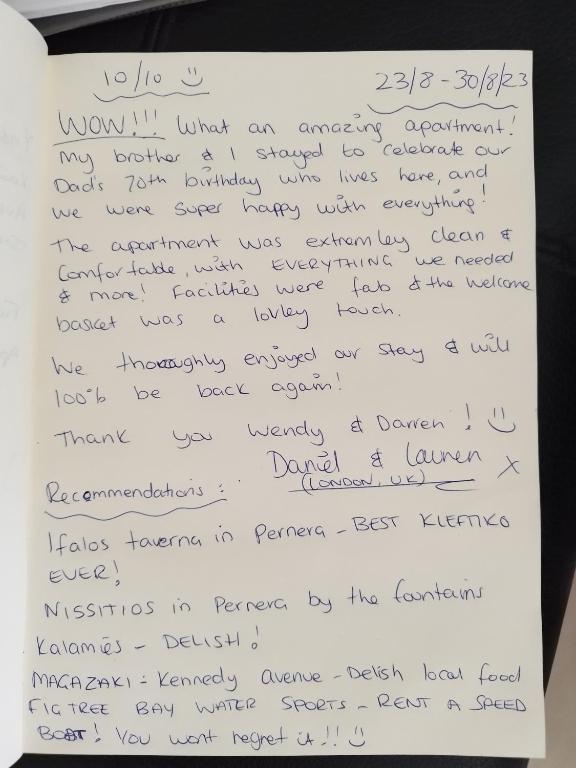 10/10 23/8 - 30/8/23
WOW!!! What an amazing apartment!
My brother & I stayed to celebrate our
Dad's 70th birthday who lives here, and
we were super happy with everything!
The apartment was extremley clean &
Comfortable, with EVERYTHING we needed
& more! Facilities were fab & the welcome
basket was a lovley touch.
We thoroughly enjoyed our stay & will
100% be back again!
Thank you Wendy & Darren! :)
Daniel & Lauren x
(LONDON, UK)
Recommendations:
Ifalos taverna in Pernera - BEST KLEFTIKO
EVER!
NISSITIOS in Pernera by the fountains
Kalamies - DELISH!
MAGAZAKI: Kennedy avenue - Delish local food
FIG TREE BAY WATER SPORTS - RENT A SPEED
BOAT! You wont regret it!! :)